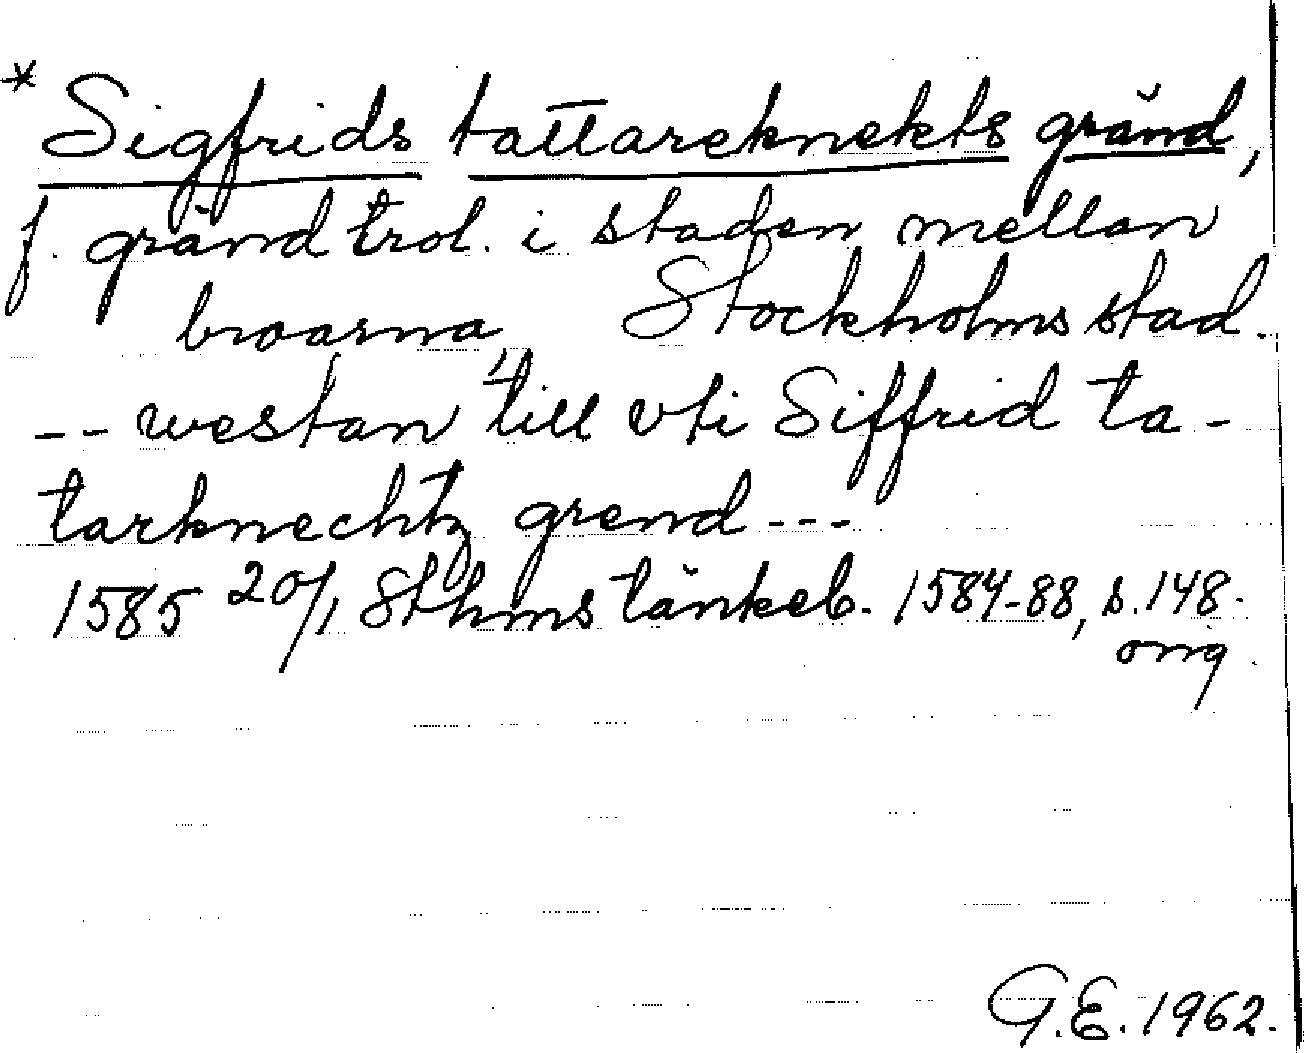 * Sigfrids tattareknekts gränd,
f. gränd trol. i staden mellan
broarna, Stockholms stad.
-- westan till vti Siffrid ta-
tarknechtz grend ---
1585 20/1 Sthms tänkeb. 1584-88, s. 148.
orig.
G.E. 1962.